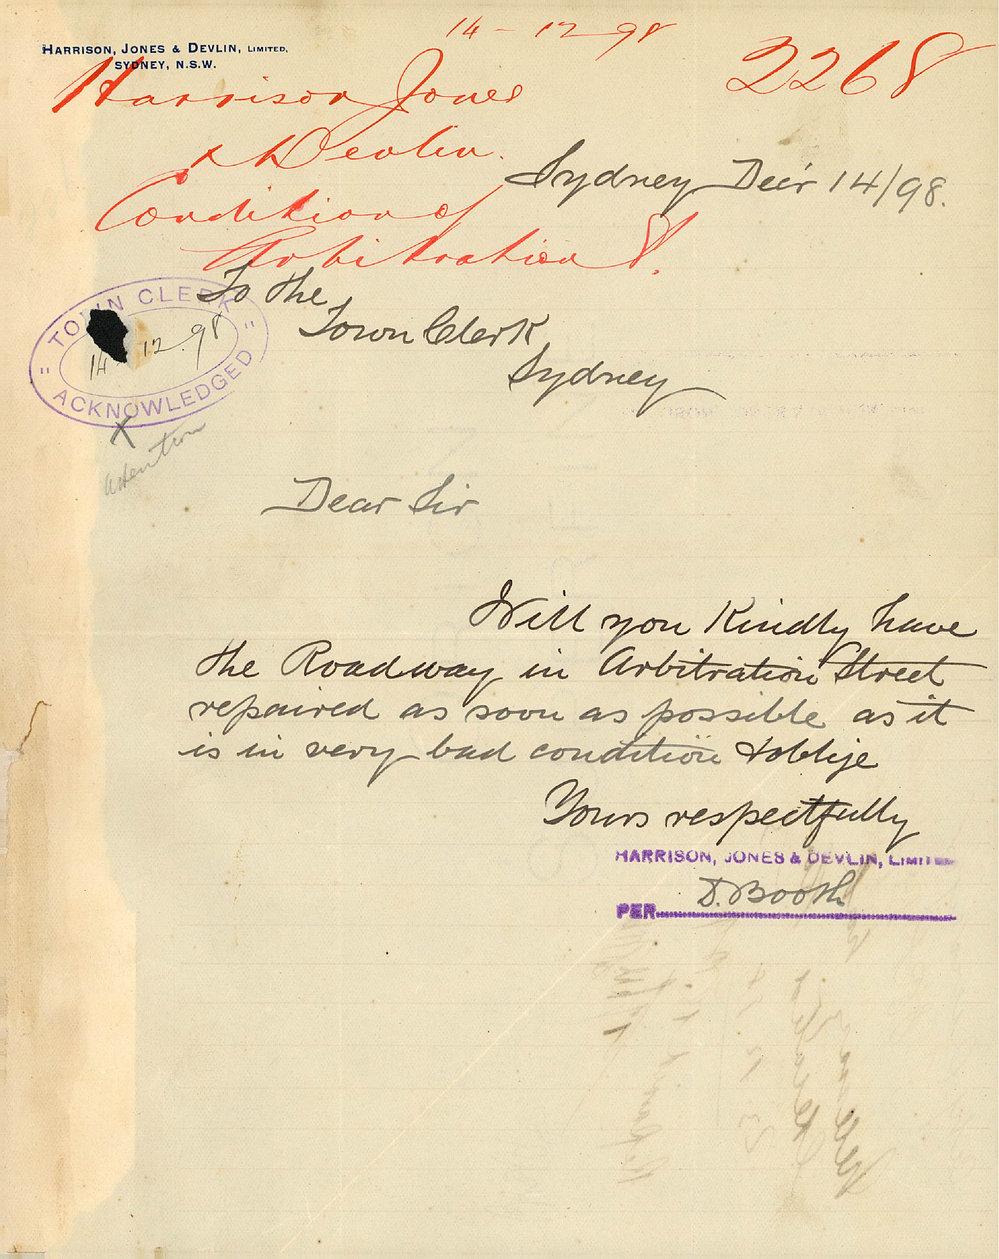 14 - 12 98
HARRISON, JONES & DEVLIN, LIMITED.
SYDNEY, N.S.W.
2268
Harrison Jones
& Devlin.
Condition of
Arbitration St.
Sydney Dec'r 14/98.
To the
Town Clerk
Sydney
TOWN CLERK
14 12.98
ACKNOWLEDGED
X
attention
Dear Sir
Will you Kindly have
the Roadway in Arbitration Street
repaired as soon as possible as it
is in very bad condition & oblige
Yours respectfully
HARRISON, JONES & DEVLIN, LIMITED
D. Booth
PER